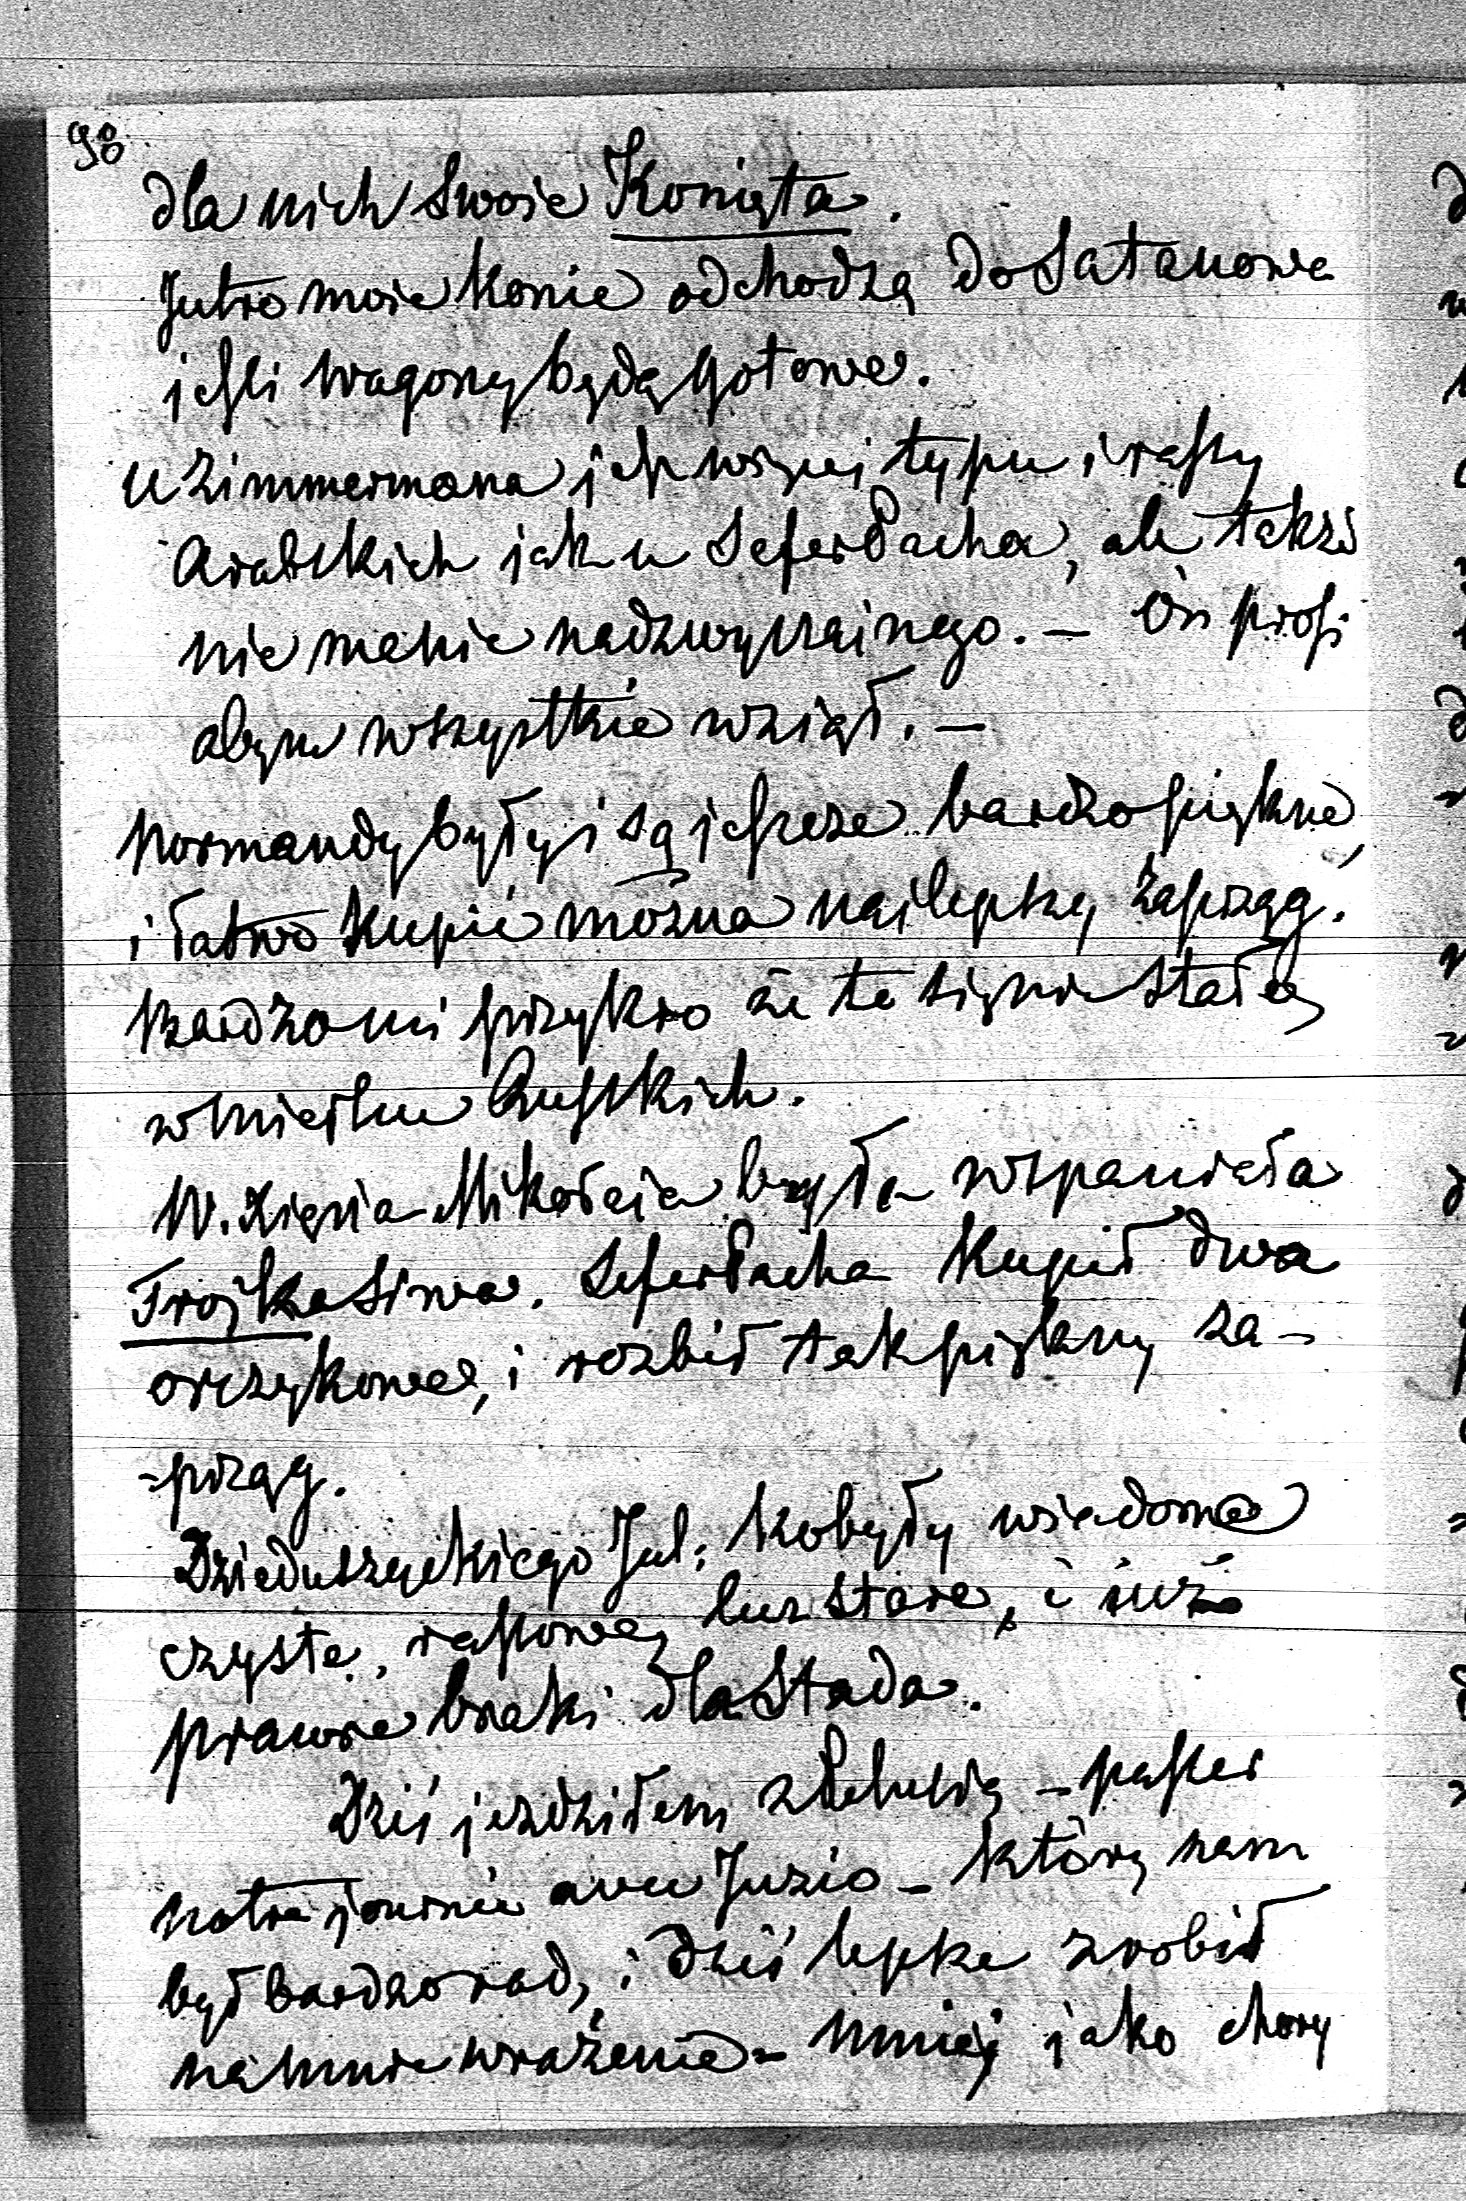 98
dla nich swoie Konięta.
Jutro moie konie odchodzą do Satanowa
jeśli wagony będą gotowe.
u Zimmermana jest więcej typu i rassy
Arabskich jak u Sefer Pacha, ale także
nie ma nic nadzwyczainego. — On prosi
abym wszystkie wziął. —
Normandy były i są jeszcze bardzo piękne,
i łatwo kupić można najlepszy zaprząg.
Bardzo mi przykro że te signie stały
w ręku Ruskich.
W. Xięcia Mikołaia była wspaniała
Trojka Siwa. Sefer Pacha kupił dwa
orczykowe, i rozbił tak piękny za-
-prząg.
Dzieduszyckiego Jul: Kobyły wiadome
czyste, rassowe, lecz stare, i iuż
prawie braki dla Stada.
Dziś jezdziłem z — passer
notre journée avec Juzio — który nam
był bardzo rad, i dziś lepsze zrobił
na mnie wrażenie — mniej jako chory